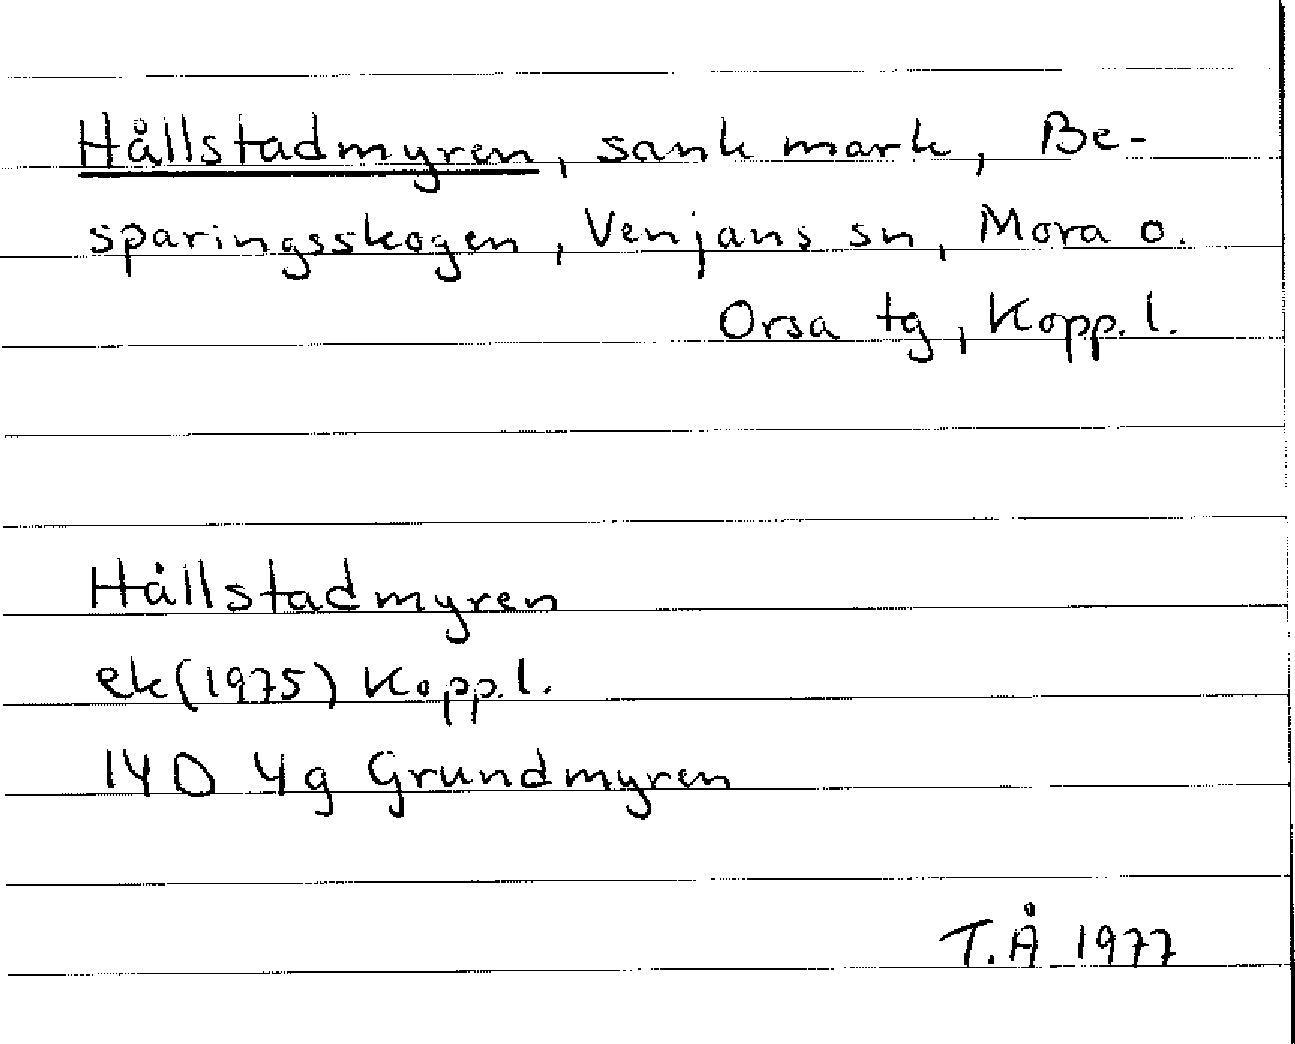 Hållstadmyren, sank mark, Be-
sparingsskogen, Venjans sn, Mora o.
Orsa tg, Kopp. l.
Hållstadmyren
ek (1975) Kopp. l.
14D 4g Grundmyren
T.Å 1977